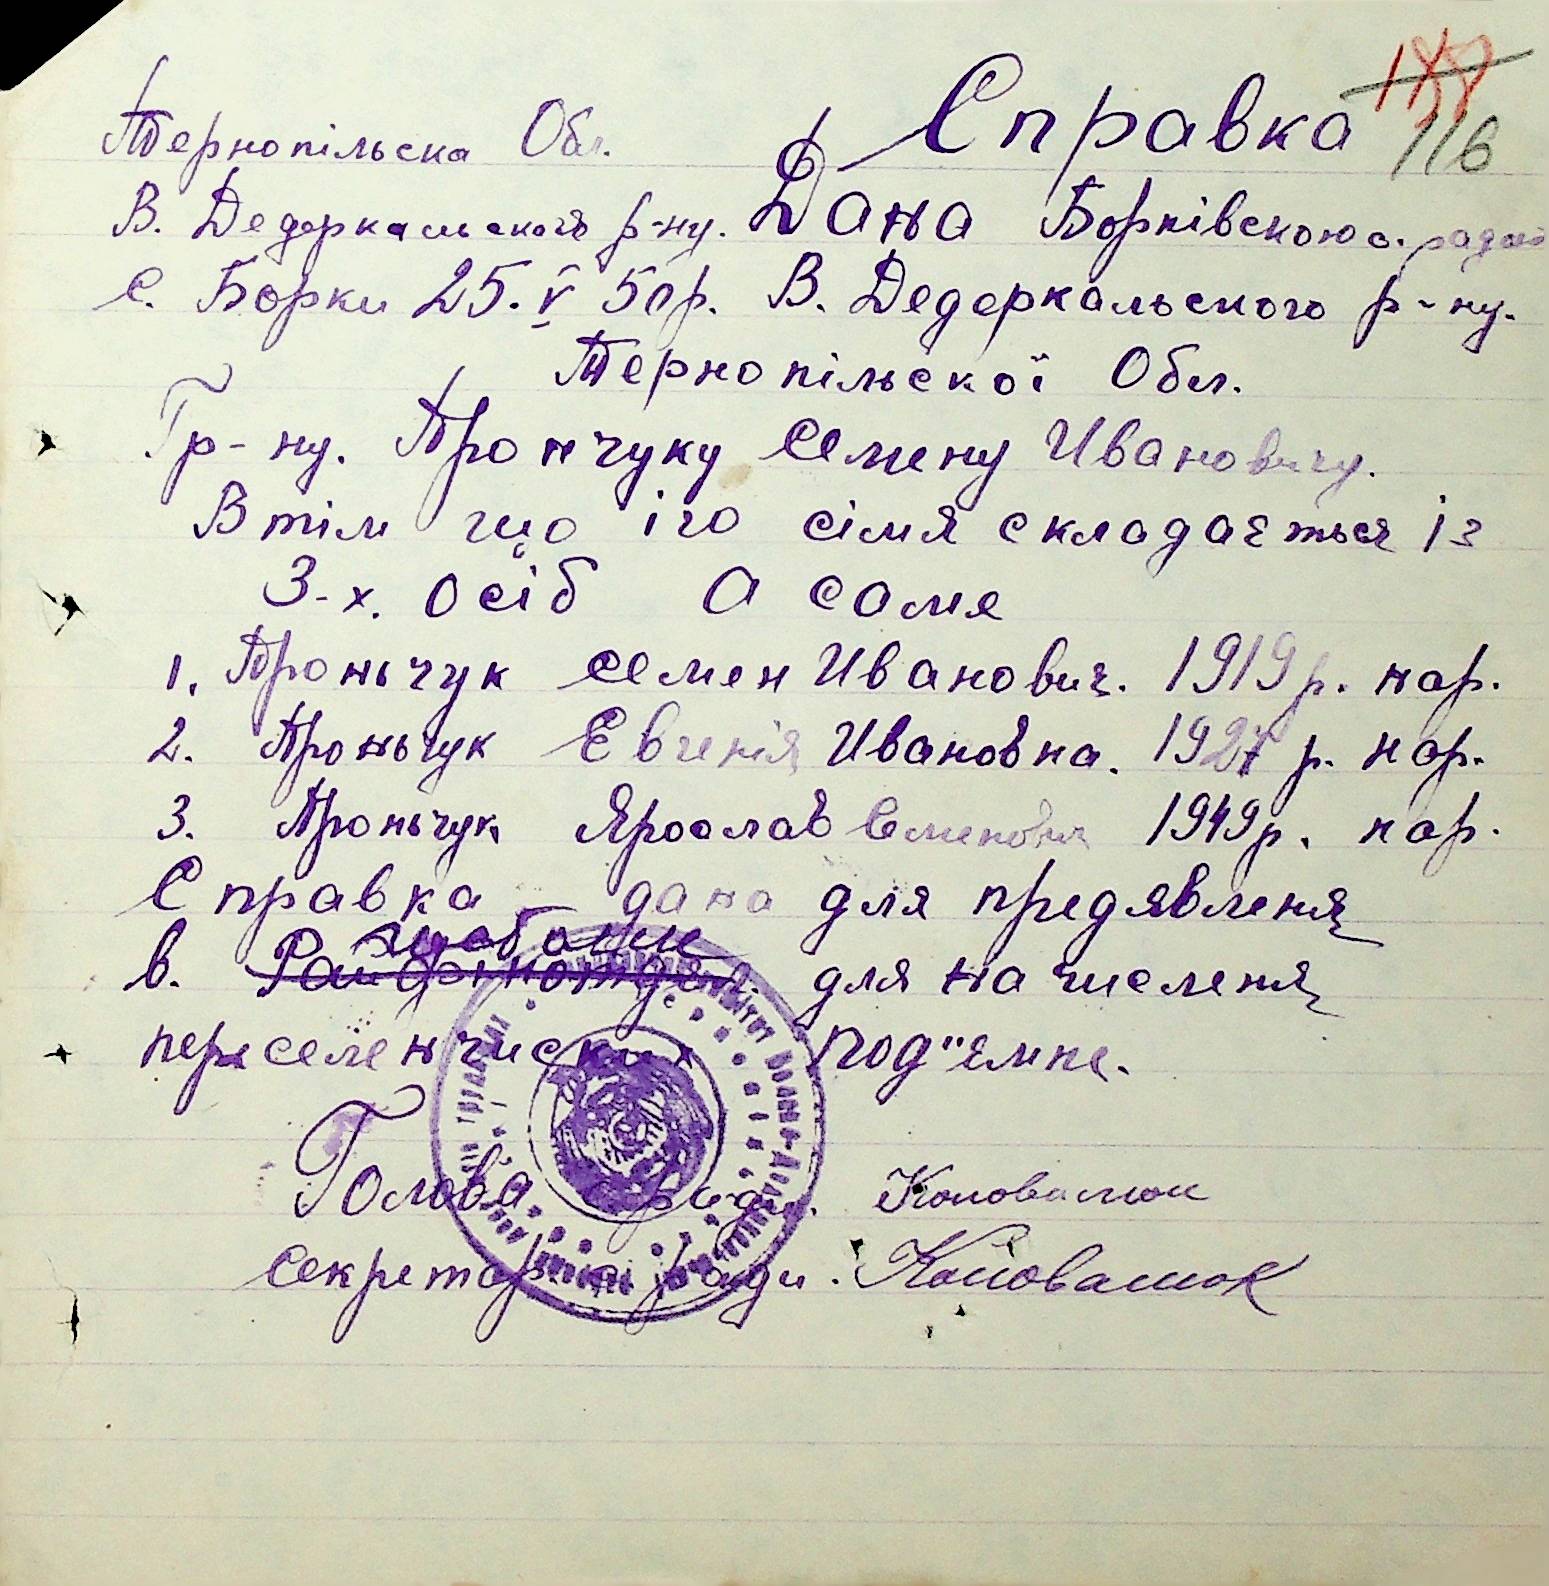 Справка
188
116
Тернопільска Обл.
В. Дедеркальского р-ну. Дана Борківскою с. радою
с. Борки 25. V 50 р. В. Дедеркальского р-ну.
Тернопільскої Обл.
Гр-ну. Прончуку Семену Ивановичу.
В тім що іго сімя складаєтьсе Із
3-х. осіб а саме
1. Проньчук Семен Иванович. 1919 р. нар.
2. Проньчук Евгенія Ивановна. 1927 р. нар.
3. Проньчук Ярослав Семенович 1949 р. нар.
Справка дана для предявленя
в. Райфінотдел. для начисленя
переселенчиских под"емне.
Голова с ради. Коновалюк
секретар с ради. Коновалюк